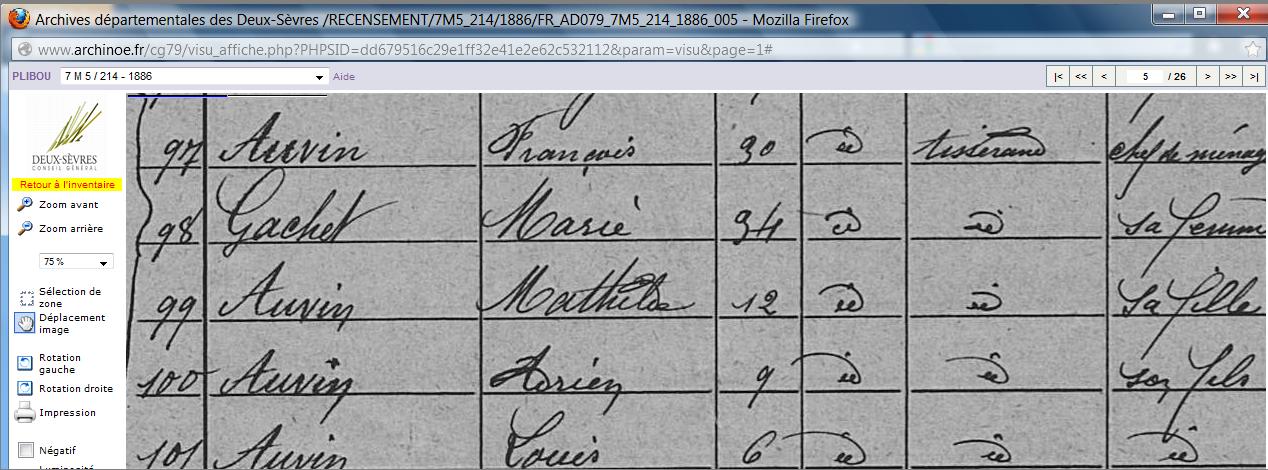 Archives départementales des Deux-Sèvres /RECENSEMENT/7M5_214/1886/FR_AD079_7M5_214_1886_005 - Mozilla Firefox
www.archinoe.fr/cg79/visu_affiche.php?PHPSID=dd679516c29e1ff32e41e2e62c532112&param=visu&page=1#
PLIBOU 7 M 5 / 214 - 1886 Aide |< << < 5 / 26 > >> >|
DEUX-SÈVRES
CONSEIL GÉNÉRAL
Retour à l'inventaire
Zoom avant
Zoom arrière
75 %
Sélection de
zone
Déplacement
image
Rotation
gauche
Rotation droite
Impression
Négatif
Luminosité
97 Auvin François 30 id tisserand chef de ménag
98 Gachet Marie 34 id id sa femm
99 Auvin Mathilde 12 id id sa fille
100 Auvin Adrien 9 id id son fils
101 Auvin Louis 6 id id id